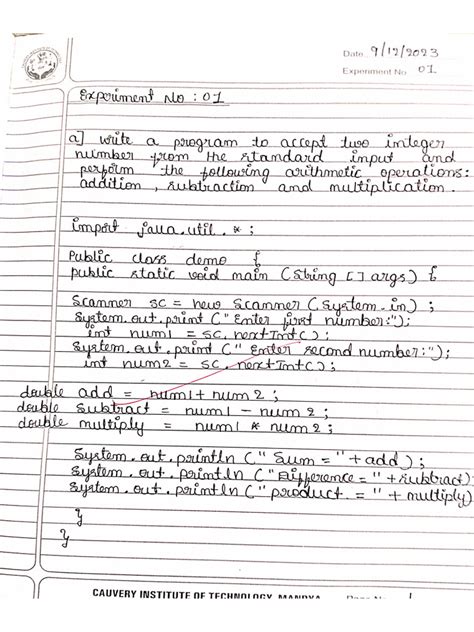 Date 9/12/2023
Experiment No 01
Experiment No : 01
a] write a program to accept two integer
number from the standard input and
perform the following arithmetic operations:
addition , subtraction and multiplication .
import java.util.*;
Public class demo {
public static void main (String [] args) {
Scanner sc = new Scanner (System.in) ;
System.out.print (" Enter first number:");
int num1 = sc.nextInt();
System.out.print (" Enter second number:");
int num2 = sc.nextInt();
double add = num1 + num2 ;
double subtract = num1 - num2 ;
double multiply = num1 * num2 ;
System.out.println (" Sum = " + add) ;
System.out.println (" Difference = " + subtract)
System.out.println (" product = " + multiply)
}
}
CAUVERY INSTITUTE OF TECHNOLOGY, MANDYA